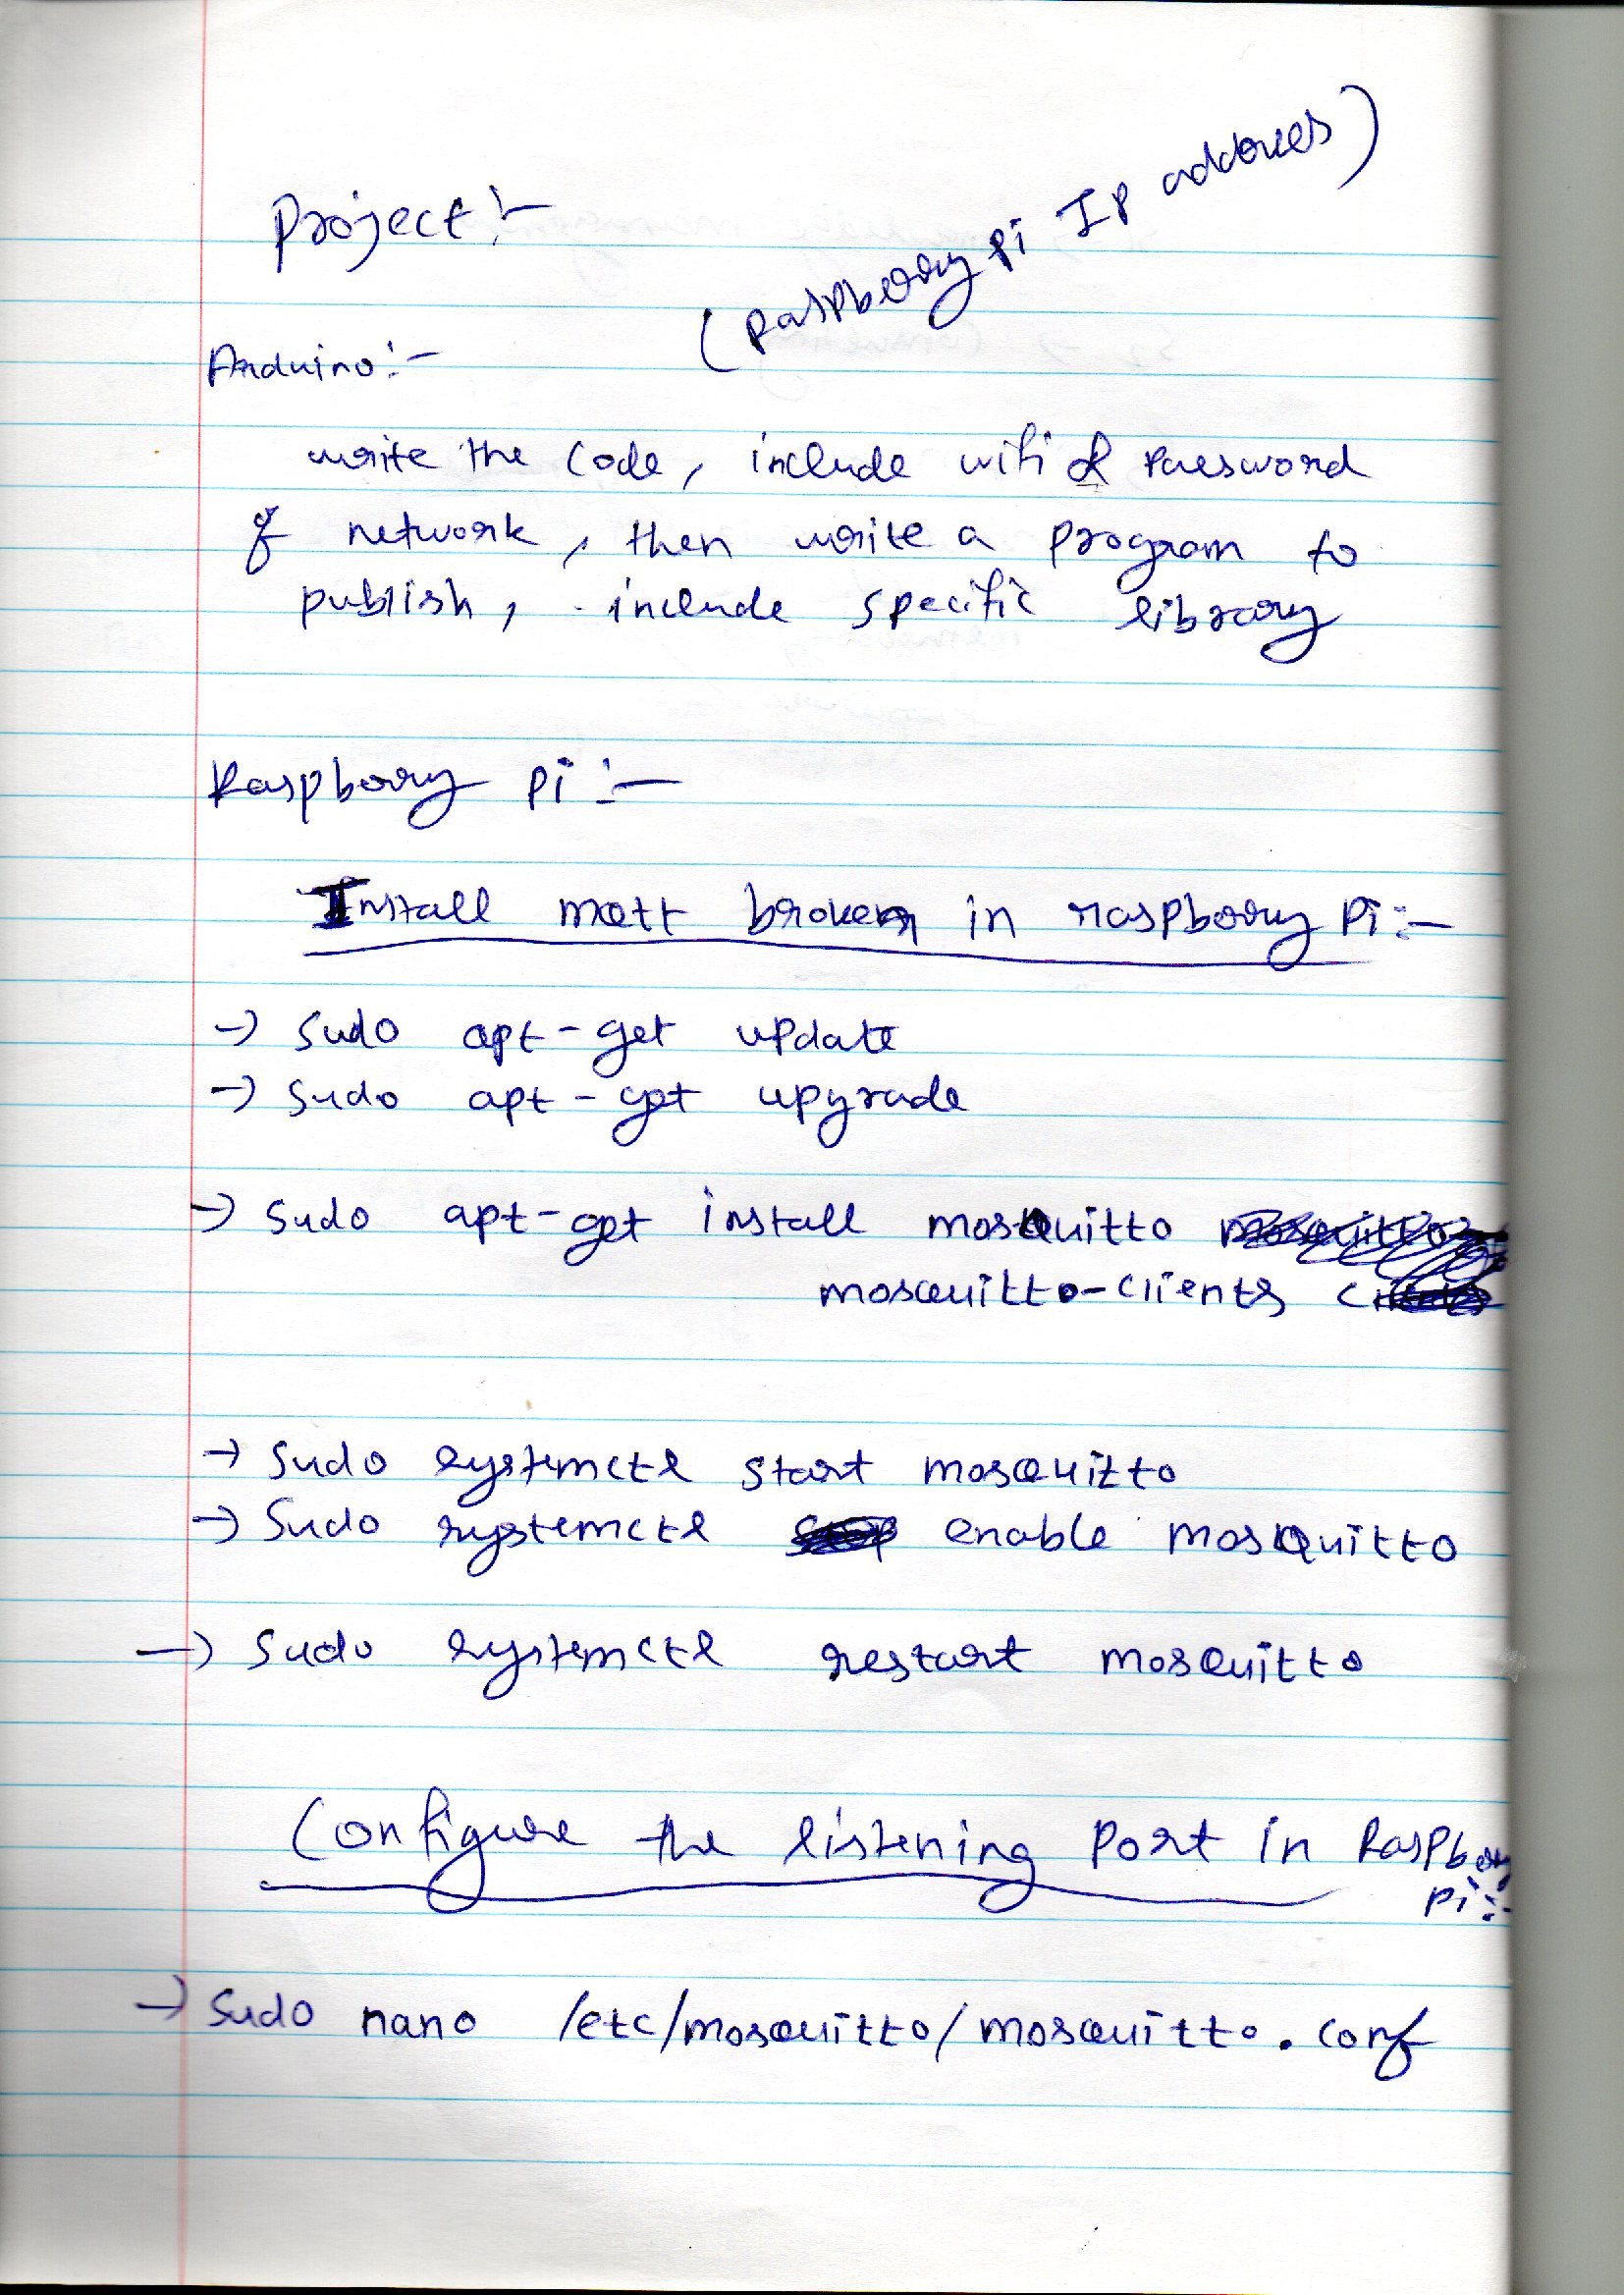 Project :-
(Raspberry pi Ip address)
Arduino :-
write the code, include wifi & Password
of network, then write a program to
publish, include specific library
Raspberry pi :-
Install mqtt broker in raspberry Pi :-
→ sudo apt-get update
→ sudo apt-get upgrade
→ sudo apt-get install mosquitto
mosquitto-clients
→ sudo systemctl start mosquitto
→ sudo systemctl enable mosquitto
→ sudo systemctl restart mosquitto
Configure the listening Port in Raspberry
pi :-
→ sudo nano /etc/mosquitto/mosquitto.conf